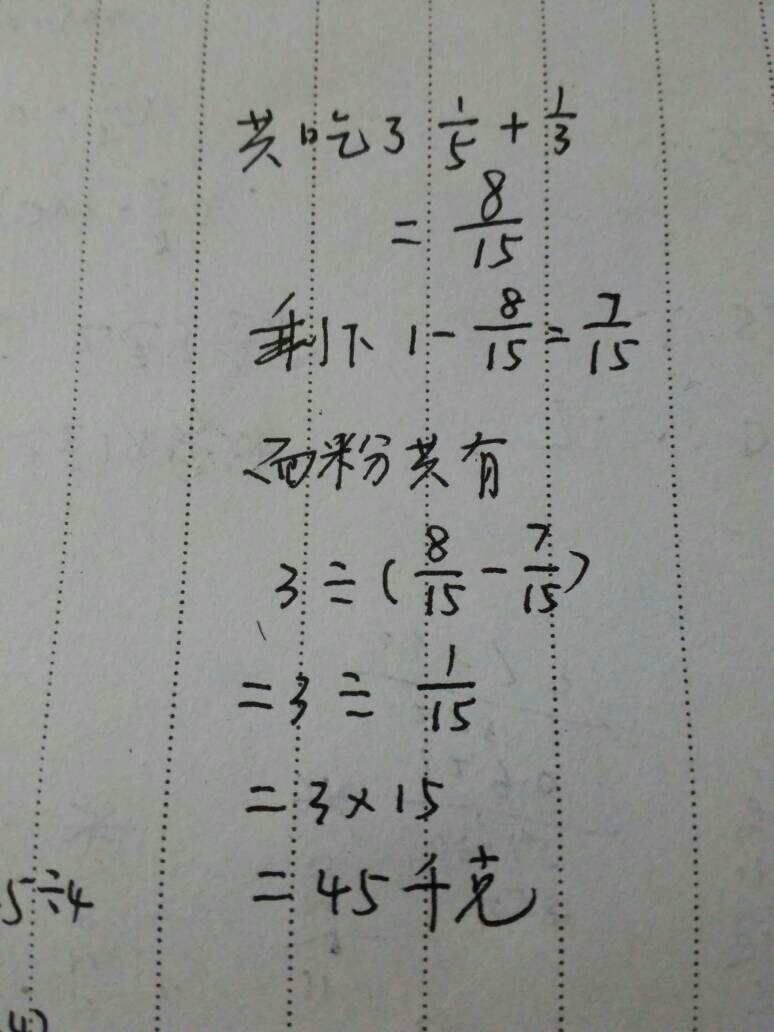 共吃了 1/5 + 1/3
= 8/15
剩下 1 - 8/15 = 7/15
面粉共有
3 ÷ ( 8/15 - 7/15 )
= 3 ÷ 1/15
= 3 × 15
5÷4
= 45 千克
4)